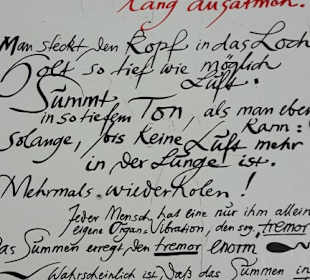 lang ausatmen.
Man steckt den Kopf in das Loch
Holt so tief wie möglich
Luft.
Summt
in so tiefem Ton, als man eben
kann:
solange, bis keine Luft mehr
in der Lunge ist.
Mehrmals wiederholen!
Jeder Mensch hat eine nur ihm allein
eigene Organ-Vibration, den sog. tremor
Das Summen erregt den tremor enorm
Wahrscheinlich ist, daß das Summen in